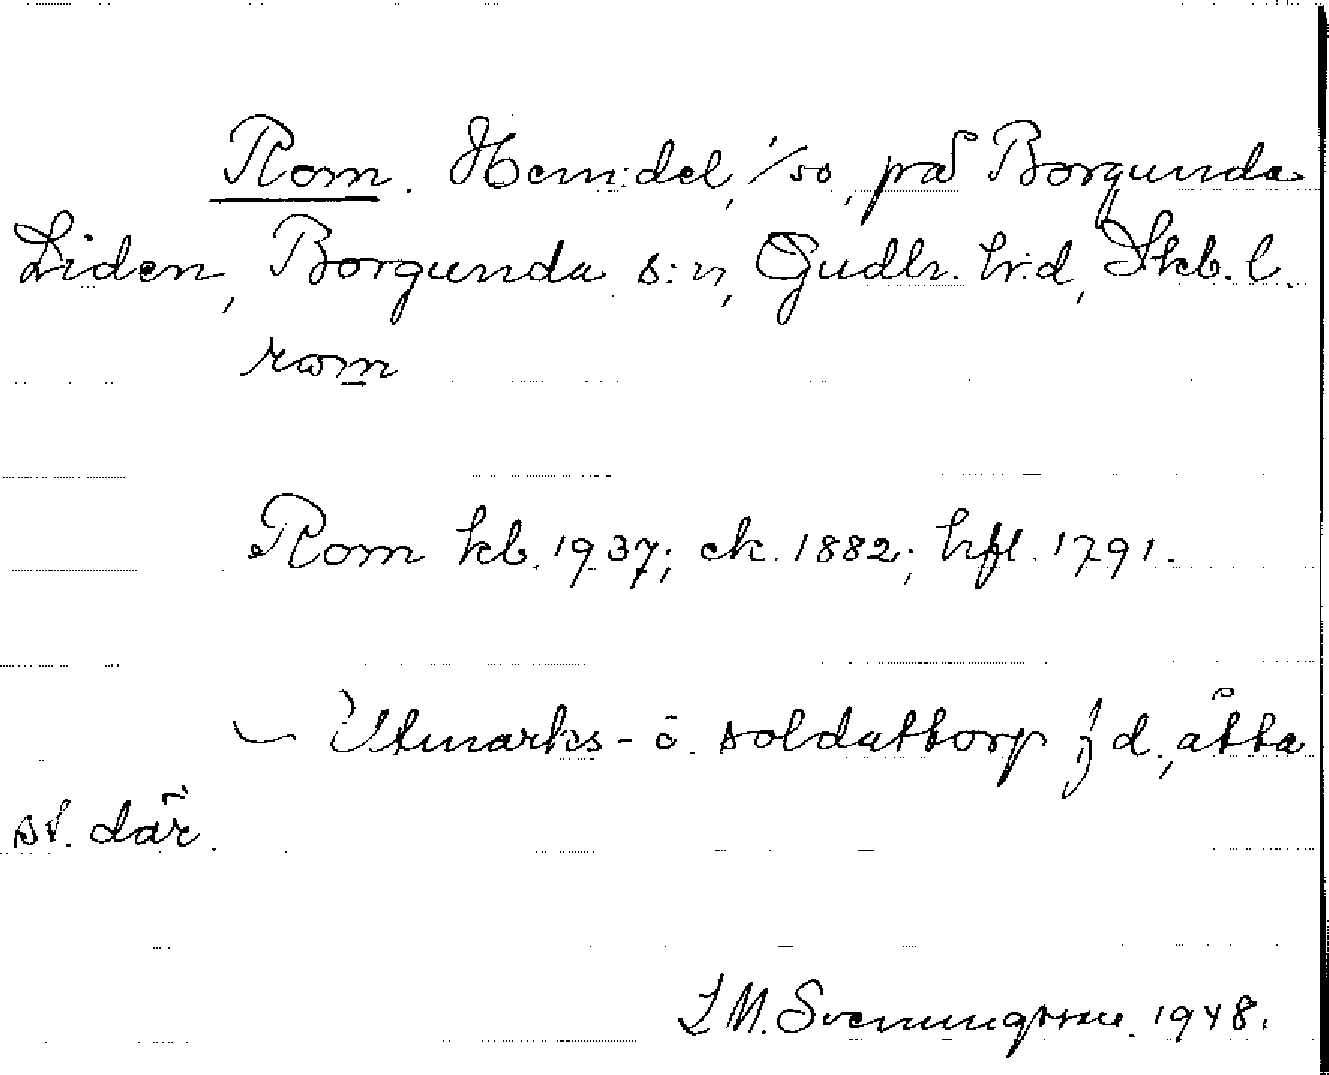 Rom. Hemdel, 1/50, på Borgunda
Liden, Borgunda s:n, Gudh. h:d, Skb. l.
rom
Rom kb. 1937; ek. 1882; hfl. 1791.
— Utmarks- o. soldattorp f d., åtta
st. där.
L M. Svenungsson. 1948.